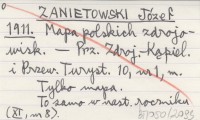 ZANIETOWSKI Józef
1911. Mapa polskich zdrojo-
wisk. — Prz. Zdroj.-Kąpiel.
i Przew. Turyst. 10, nr 1, m.
Tylko mapa.
To samo w nast. roczniku
(XI, m 8).